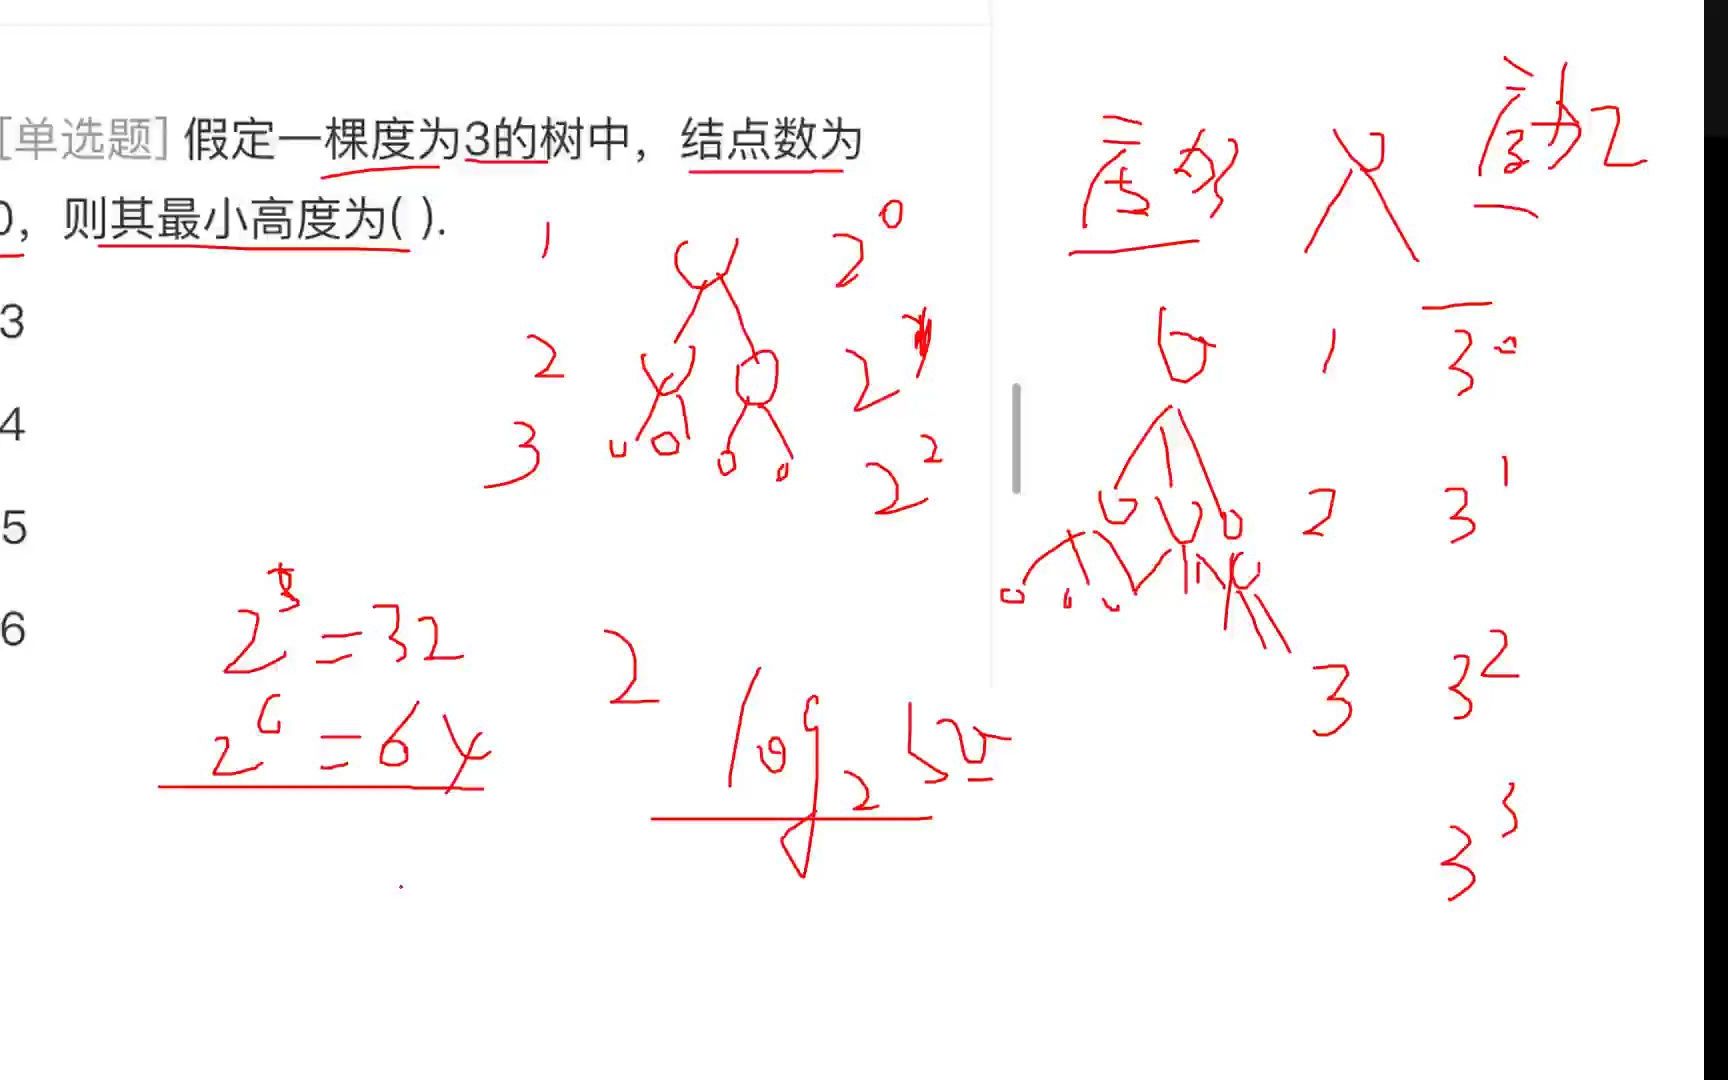 [单选题] 假定一棵度为3的树中，结点数为
0，则其最小高度为( ).
3
4
5
6
1
2
3
2^0
2
2^2
2^5=32
2^6=64
2
log2 50
度为3
度为2
1 3^0
2 3^1
3 3^2
3^3